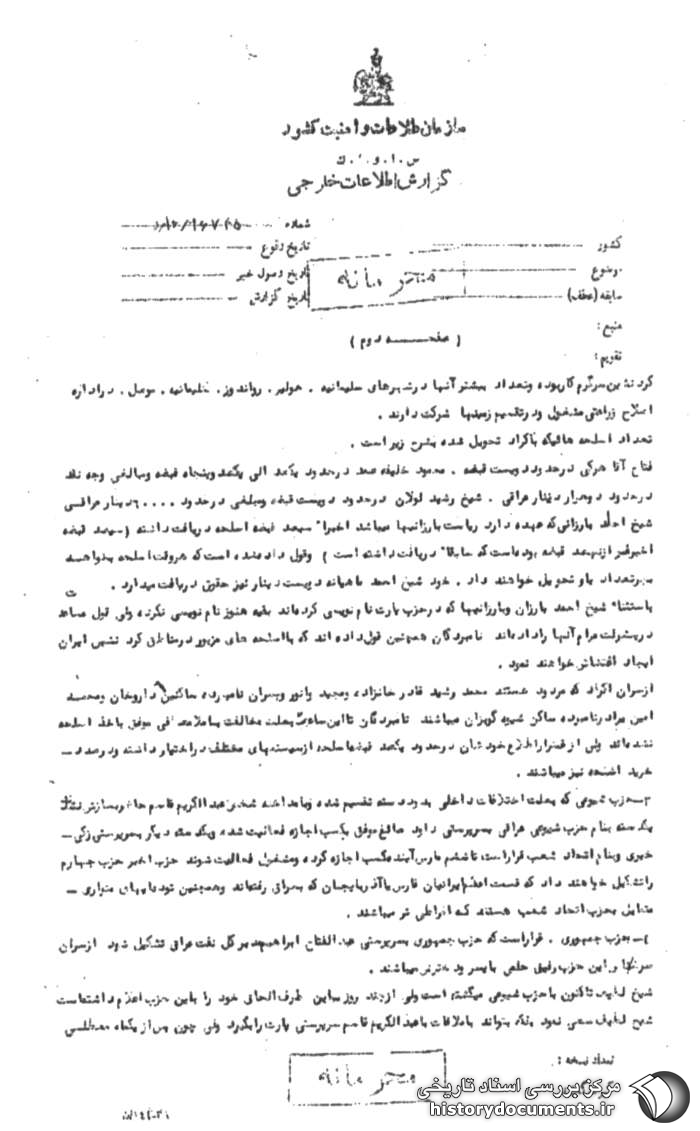 سازمان اطلاعات و امنیت کشور
س.ا.و.ا.ك
گزارش اطلاعات خارجی
شماره
کشور
تاریخ وقوع
موضوع
تاریخ وصول خبر
سابقه (عطف)
تاریخ گزارش
محرمانه
منبع :
( صفحه دوم )
تقویم :
کردنشین سرگرم کاربوده وتعداد بیشتر آنها درشهرهای سلیمانیه . هولیر . رواندوز . خلیمانیه . موصل . دراداره
اصلاح زراعتی مشغول ودرتقسیم زمینها شرکت دارند .
تعداد اسلحه هائیکه باکراد تحویل شده بشرح زیر است .
فتاح آقا هرکی درحدود دویست قبضه . محمود خلیفه صمد درحدود یکصد الی یکصد وپنجاه قبضه ومبالغی وجه نقد
درحدود دوهزار دینار عراقی . شیخ رشید لولان درحدود دویست قبضه ومبلغی درحدود دینار عراقی
شیخ احمد بارزانی که عهده دارد ریاست بارزانیها میباشد اخیرا" سیصد قبضه اسلحه دریافت داشته ( سیصد قبضه
اخیر غیر از قبضه بوده است که سابقا" دریافت داشته است ) وقول داده شده است که هروقت اسلحه بخواهد
بهرتعداد باو تحویل خواهند داد . خود شیخ احمد ماهیانه دویست دینار نیز حقوق دریافت میدارد .
باستثنا" شیخ احمد بارزان وبارزانیها که درحزب پارت نام نویسی کرده اند بقیه هنوز نام نویسی نکرده ولی قول مساعد
درپیشرفت مرام آنها را داده اند نامبردگان همچنین قول داده اند که بااسلحه های مزبور درمناطق کرد نشین ایران
ایجاد اغتشاش خواهند نمود .
ازسران اکراد که مردود هستند محمد رشید قادر خانزاده ومجید وانور وپسران نامبرده ساکنین داروخان ومحمد
امین برادر نامبرده ساکن شیوه گویزان میباشند نامبردگان تا این ساعت بعلت مخالفت باملامصطفی موفق باخذ اسلحه
نشده اند ولی از قرار اطلاع خودشان درحدود یکصد قبضه اسلحه ازسیستمهای مختلف دراختیار داشته ودرصدد -
خرید اسلحه نیز میباشند .
۳- حزب شیوعی که بعلت اختلافات داخلی بدودسته تقسیم شده وبامداخله شخص عبدالکریم قاسم حاضر بسازش نشد
یکدسته بنام حزب شیوعی عراقی بسرپرستی داود صائغ موفق بکسب اجازه فعالیت شده ویکدسته دیگر بسرپرستی زکی -
خیری وبنام اتحاد شعب قراراست تاششم مارس آینده کسب اجازه کرده ومشغول فعالیت شوند حزب اخیر حزب چهارم
راتشکیل خواهند داد که قسمت اعظم ایرانیان فارس یاآذربایجان که بعراق رفته اند وهمچنین توده ایهای متواری -
متمایل بحزب اتحاد شعب هستند که افراطی تر میباشند .
٤- حزب جمهوری . قراراست که حزب جمهوری بسرپرستی عبدالفتاح ابراهیم مدیر کل نفت عراق تشکیل شود ازسران
سرشناس این حزب رفیق حلمی باپسر ودخترش میباشند .
شیخ لطیف تاکنون باحزب شیوعی میگشته است ولی ازچند روز باین طرف الحاق خود را باین حزب اعلام داشته است
شیخ لطیف سعی نمود بلکه بتواند باملاقات باعبدالکریم قاسم سرپرستی پارت را بگیرد ولی چون پس از یکماه معطلی
تعداد نسخه :
محرمانه
مرکز بررسی اسناد تاریخی
historydocuments.ir